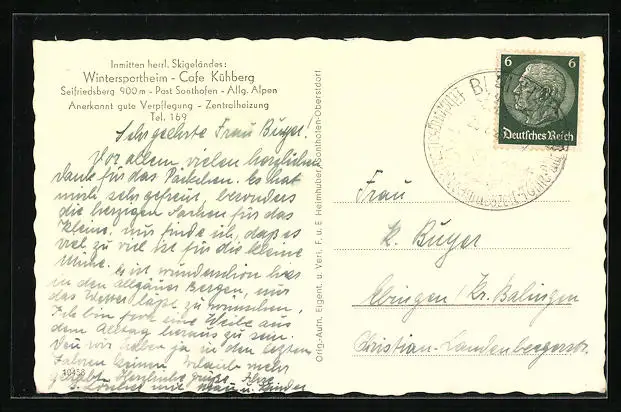 Inmitten herrl. Skigeländes:
Wintersportheim - Cafe Kühberg
Seifriedsberg 900 m - Post Sonthofen - Allg. Alpen
Anerkannt gute Verpflegung - Zentralheizung
Tel. 169
Sehr geehrte Frau Buyer!
Vor allem vielen herzlichen
Dank für das Päckchen. Es hat
mich sehr gefreut, besonders
die herzigen Sachen für das
Kleine, nur finde ich, daß es
viel zu viel ist für die kleine
Mühe. Es ist wunderschön hier
in den Allgäuer Bergen, nur
das Wetter läßt zu wünschen.
Ich bin froh eine Weile aus
dem Alltag heraus zu sein.
wir haben ja in den letzten
Jahren keinen Urlaub mehr
gehabt. Herzliche Grüße Ihre
u. Kinder
10458
Orig.-Aufn. Eigent. u. Verl. F. u. E. Heimhuber, Sonthofen-Oberstdorf
6 6
Deutsches Reich
Frau
K. Buyer
Ebingen / Kr. Balingen
Christian-Landenbergerstr.